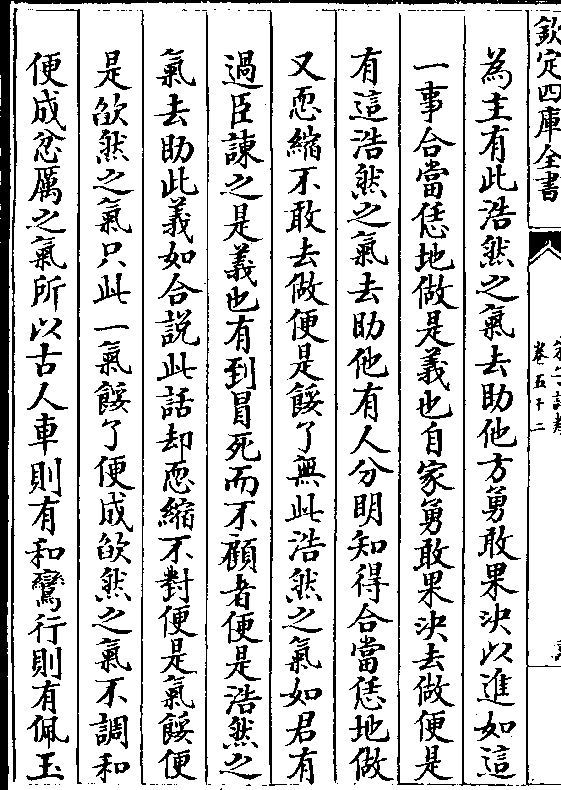 欽定四庫全書
卷五十二
為主有此浩然之氣去助他方勇敢果決以進如這
一事合當恁地做是義也自家勇敢果決去做便是
有這浩然之氣去助他有人分明知得合當恁地做
又恧縮不敢去做便是餒了無此浩然之氣如君有
過臣諫之是義也有到冒死而不顧者便是浩然之
氣去助此義如合說此話却恧縮不對便是氣餒便
是欿然之氣只此一氣餒了便成欿然之氣不調和
便成忿厲之氣所以古人車則有和鸞行則有佩玉